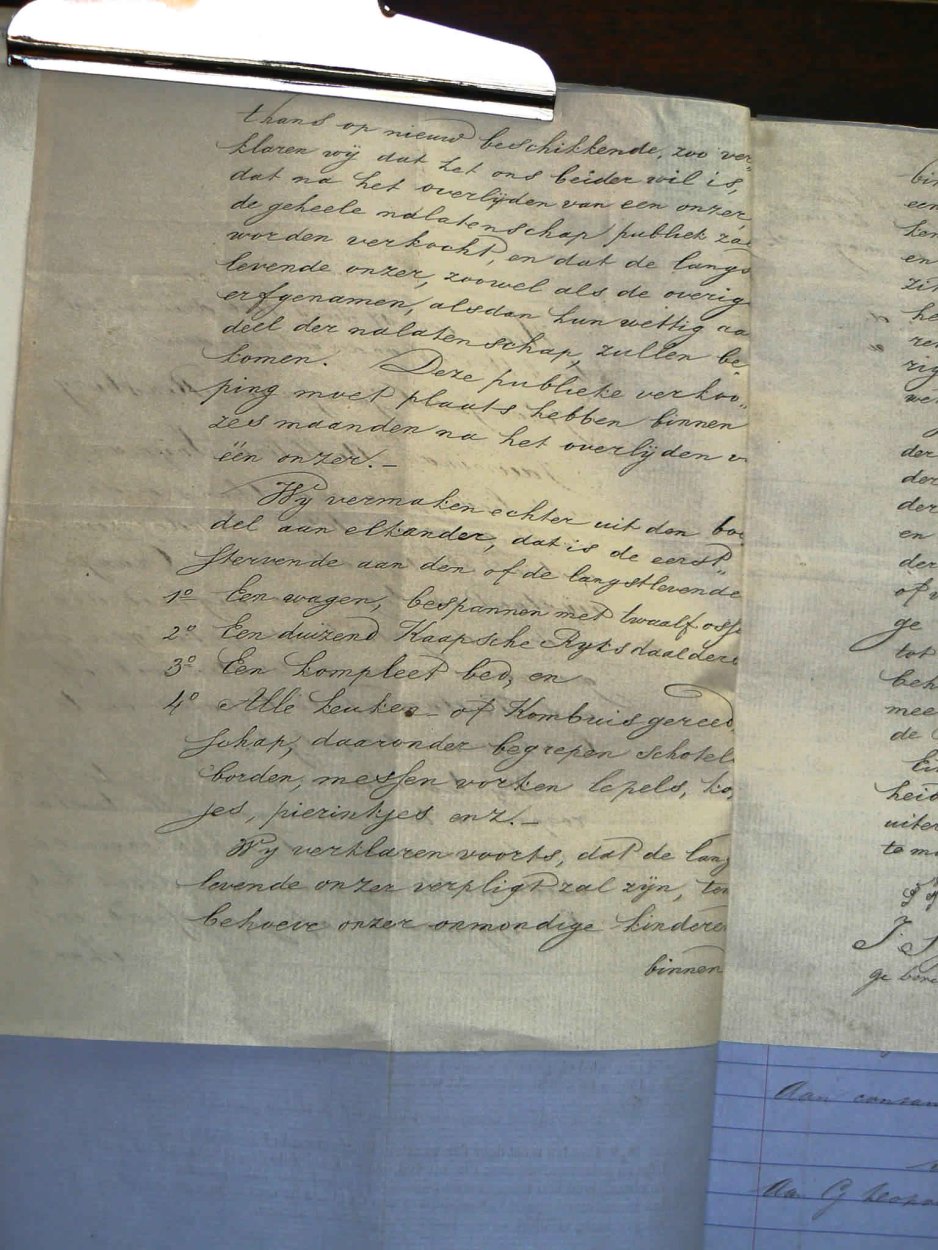 thans op nieuw beschikkende, zoo ver„
klaren wij dat het ons beider wil is,
dat na het overlijden van een onzer,
de geheele nalatenschap publiek za
worden verkocht, en dat de langs
levende onzer, zoowel als de overig
erfgenamen, alsdan hun wettig aa
deel der nalatenschap, zullen be„
komen. Deze publieke verkoo„
ping moet plaats hebben binnen
zes maanden na het overlijden v
één onzer.—
Wy vermaken echter uit den boe
del aan elkander, dat is de eerst„
stervende aan den of de langstlevende
1º Een wagen, bespannen met twaalf osse
2º Een duizend Kaapsche Ryksdaalders
3º Een kompleet bed, en
4º Alle keuken- of Kombuisgereed
schap, daaronder begrepen schotel
borden, messen vorken lepels, ko
jes, pierintjes enz.—
Wy verklaren voorts, dat de lang
levende onzer verpligt zal zijn, ten
behoeve onzer onmondige kindere
binnen
bin
een
ken
en
zi
he
ren
rig
we
der
der
der
en
der
of
ge
tot
beh
mee
de
Ei
heid
uiter
te m
J. S
ge bore
Aan
Aan G